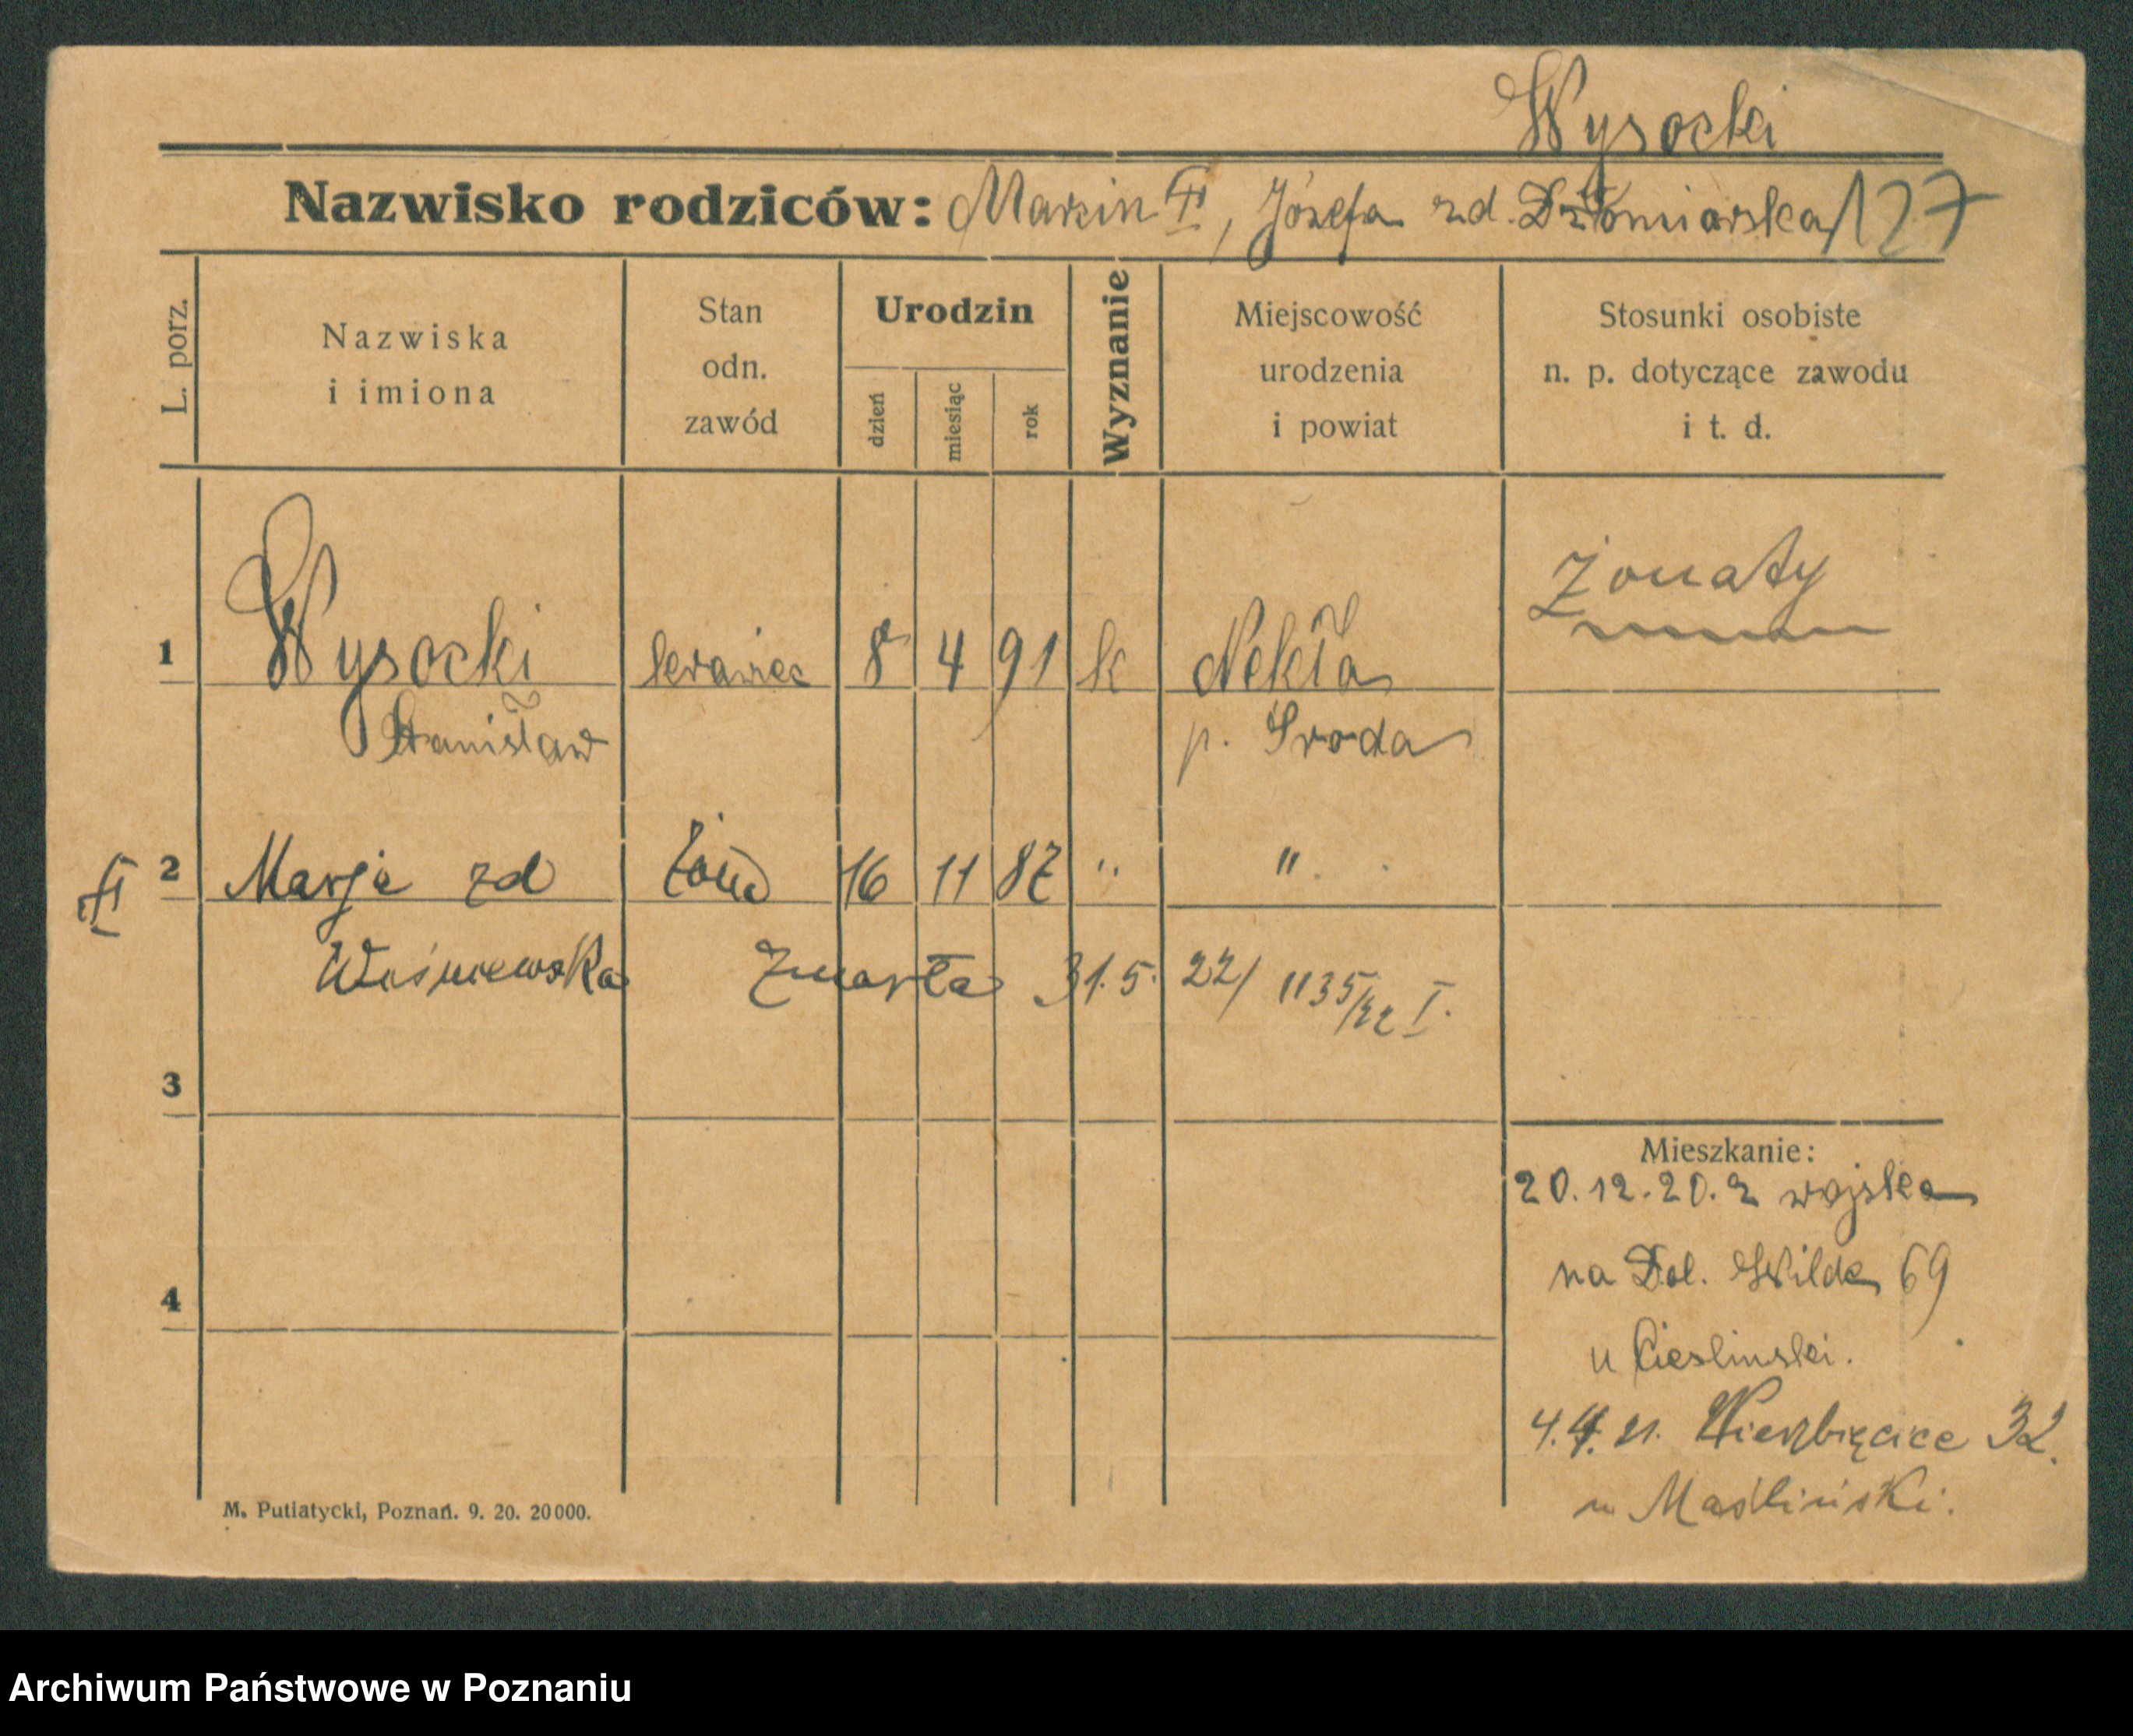 Wysocki
Nazwisko rodziców: Marcin †, Józefa zd. 127
L. porz.
Nazwiska i imiona
Stan odn. zawód
Urodzin
dzień miesiąc rok
Wyznanie
Miejscowość urodzenia i powiat
Stosunki osobiste n. p. dotyczące zawodu i t. d.
żonaty
1 Wysocki krawiec 8 4 91 k Nekła
Stanisław p. Sroda
† 2 Marja zd żona 16 11 87 " "
Wiśniewska Zmarła 31.5. 22/ 1135/22 I.
3
4
Mieszkanie:
20.12.20. z wojska
na Dol. Wilda 69
u Cieslinski.
4.4.21. Wierzbięcice 32.
u Maśliński.
M. Putiatycki, Poznań. 9. 20. 20000.
Archiwum Państwowe w Poznaniu